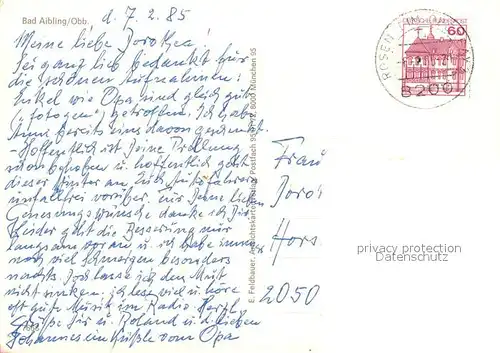 Bad Aibling/Obb.
d. 7.2.85
Meine liebe Dorothea!
Sei ganz lieb bedankt für
die schönen Aufnahmen!
Enkel wie Opa sind gleich gut
("fotogen") getroffen. Ich habe
Anne bereits eins davon geschickt.
- Hoffentlich ist Deine Prellung
verschoben u. hoffentlich geht
dieser Winter an Euch Autofahrern
unfallfrei vorüber. Für Deine lieben
Genesungswünsche danke ich Dir.
Leider geht die Besserung nur
langsam voran u. ich habe immer
noch viel Schmerzen besonders
nachts. Doch lasse ich den Mut
nicht sinken. Ich lese viel u. höre
oft gute Musik im Radio. Herzl.
Grüße Dir u. Roland u. d. lieben
Johannes ein Küßle vom Opa
E. Feldbauer, Ansichtskartenverlag Postfach 95 8000 München 95
DEUTSCHE BUNDESPOST
60
ROSENHEIM
8200
Frau
Dorot
Hors
2050
privacy protection
Datenschutz